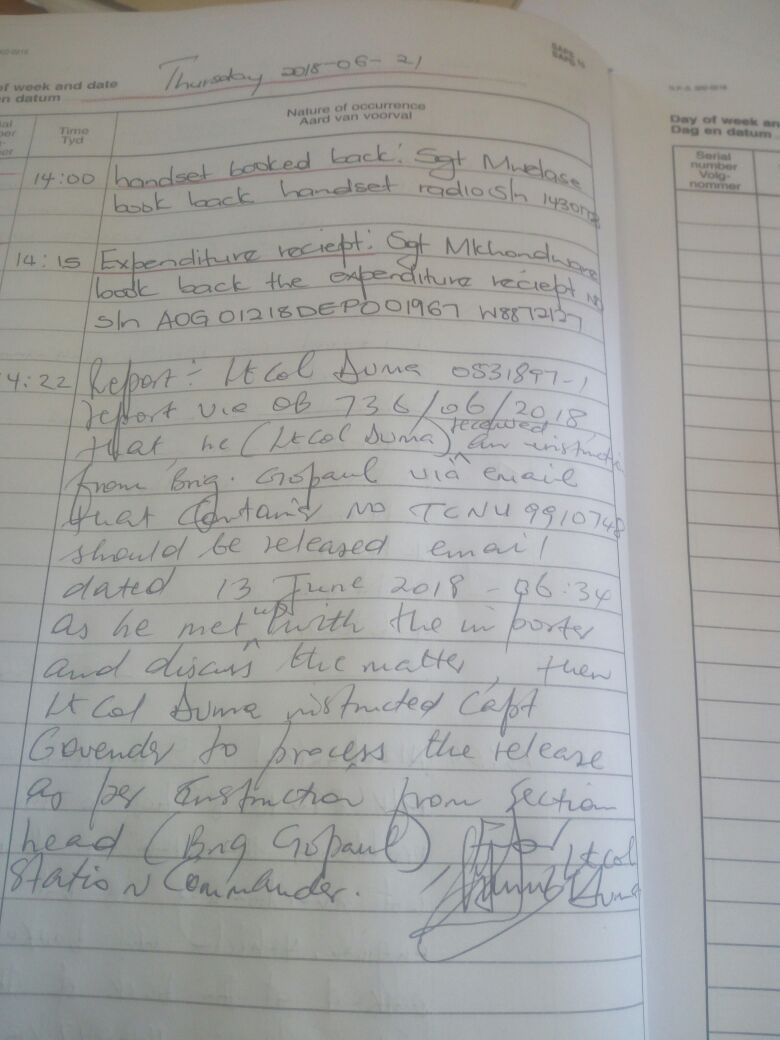 SAPS
SAPS 10
of week and date
en datum
Thursday 2018-06-21
Time
Tyd
Nature of occurrence
Aard van voorval
14:00 handset booked back: Sgt Mwelase
book back handset radio S/n
14:15 Expenditure reciept: Sgt
book back the expenditure reciept
s/n AOG 01218DEP001967 W8872127
4:22 Report:- Lt Col Duma 0531897-1
report via OB 736/06/2018
received
that he (Lt Col Duma) an
from Brig. Gopaul via email
that No TCNU 9910748
should be released email
dated 13 June 2018 - 06:34
up
as he met with the importer
and discuss the matter, then
Lt Col Duma instructed Capt
Govender to process the release
as per instruction from section
head (Brig Gopaul) Lt Col
Station Commander. Duma
Day of week an
Dag en datum
Serial
number
Volg-
nommer